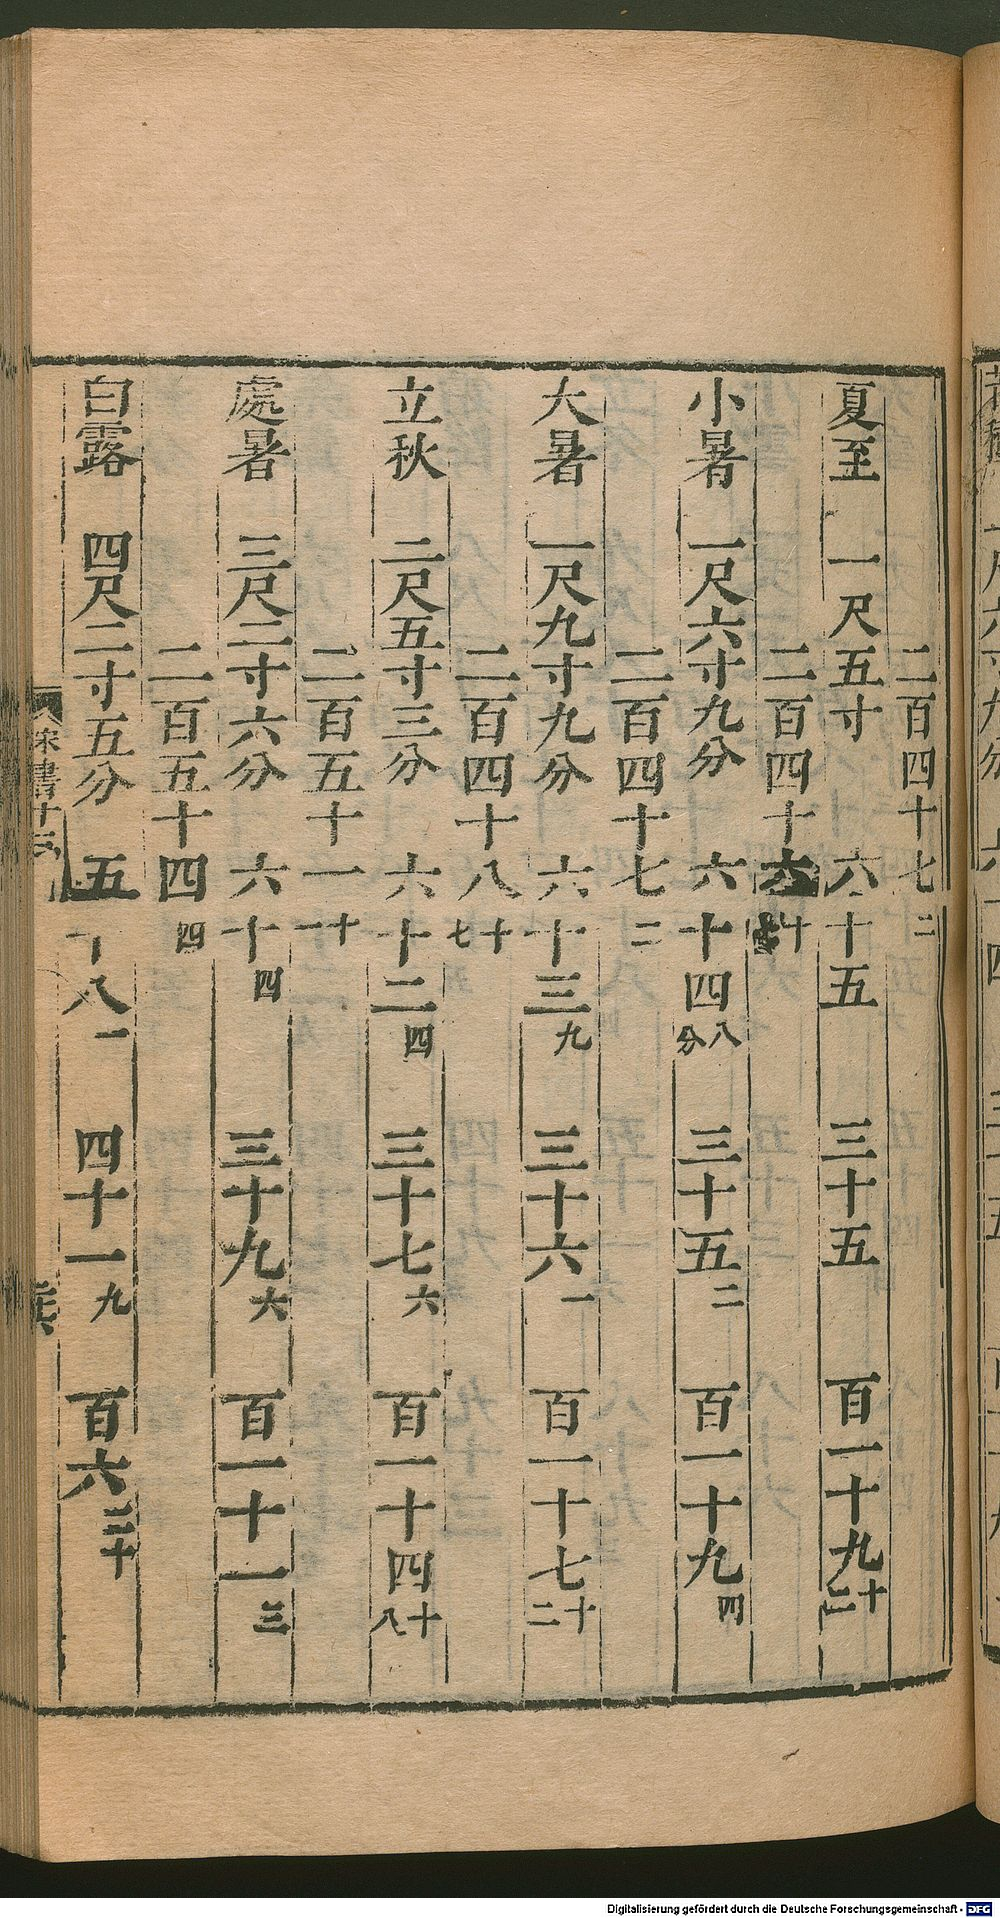 二百四十七二
夏至　一尺五寸　六十五　三十五　百一十九十二
二百四十六十
小暑　一尺六寸九分　六十四八分　三十五二　百一十九四
二百四十七二
大暑　一尺九寸九分　六十三九　三十六一　百一十七十二
二百四十八十七
立秋　二尺五寸三分　六十二四　三十七六　百一十四十八
二百五十一十一
處暑　三尺二寸六分　六十四　三十九六　百一十一三
二百五十四四
白露　四尺二寸五分　五十八一　四十一九　百六二十
宋書十
Digitalisierung gefördert durch die Deutsche Forschungsgemeinschaft - DFG